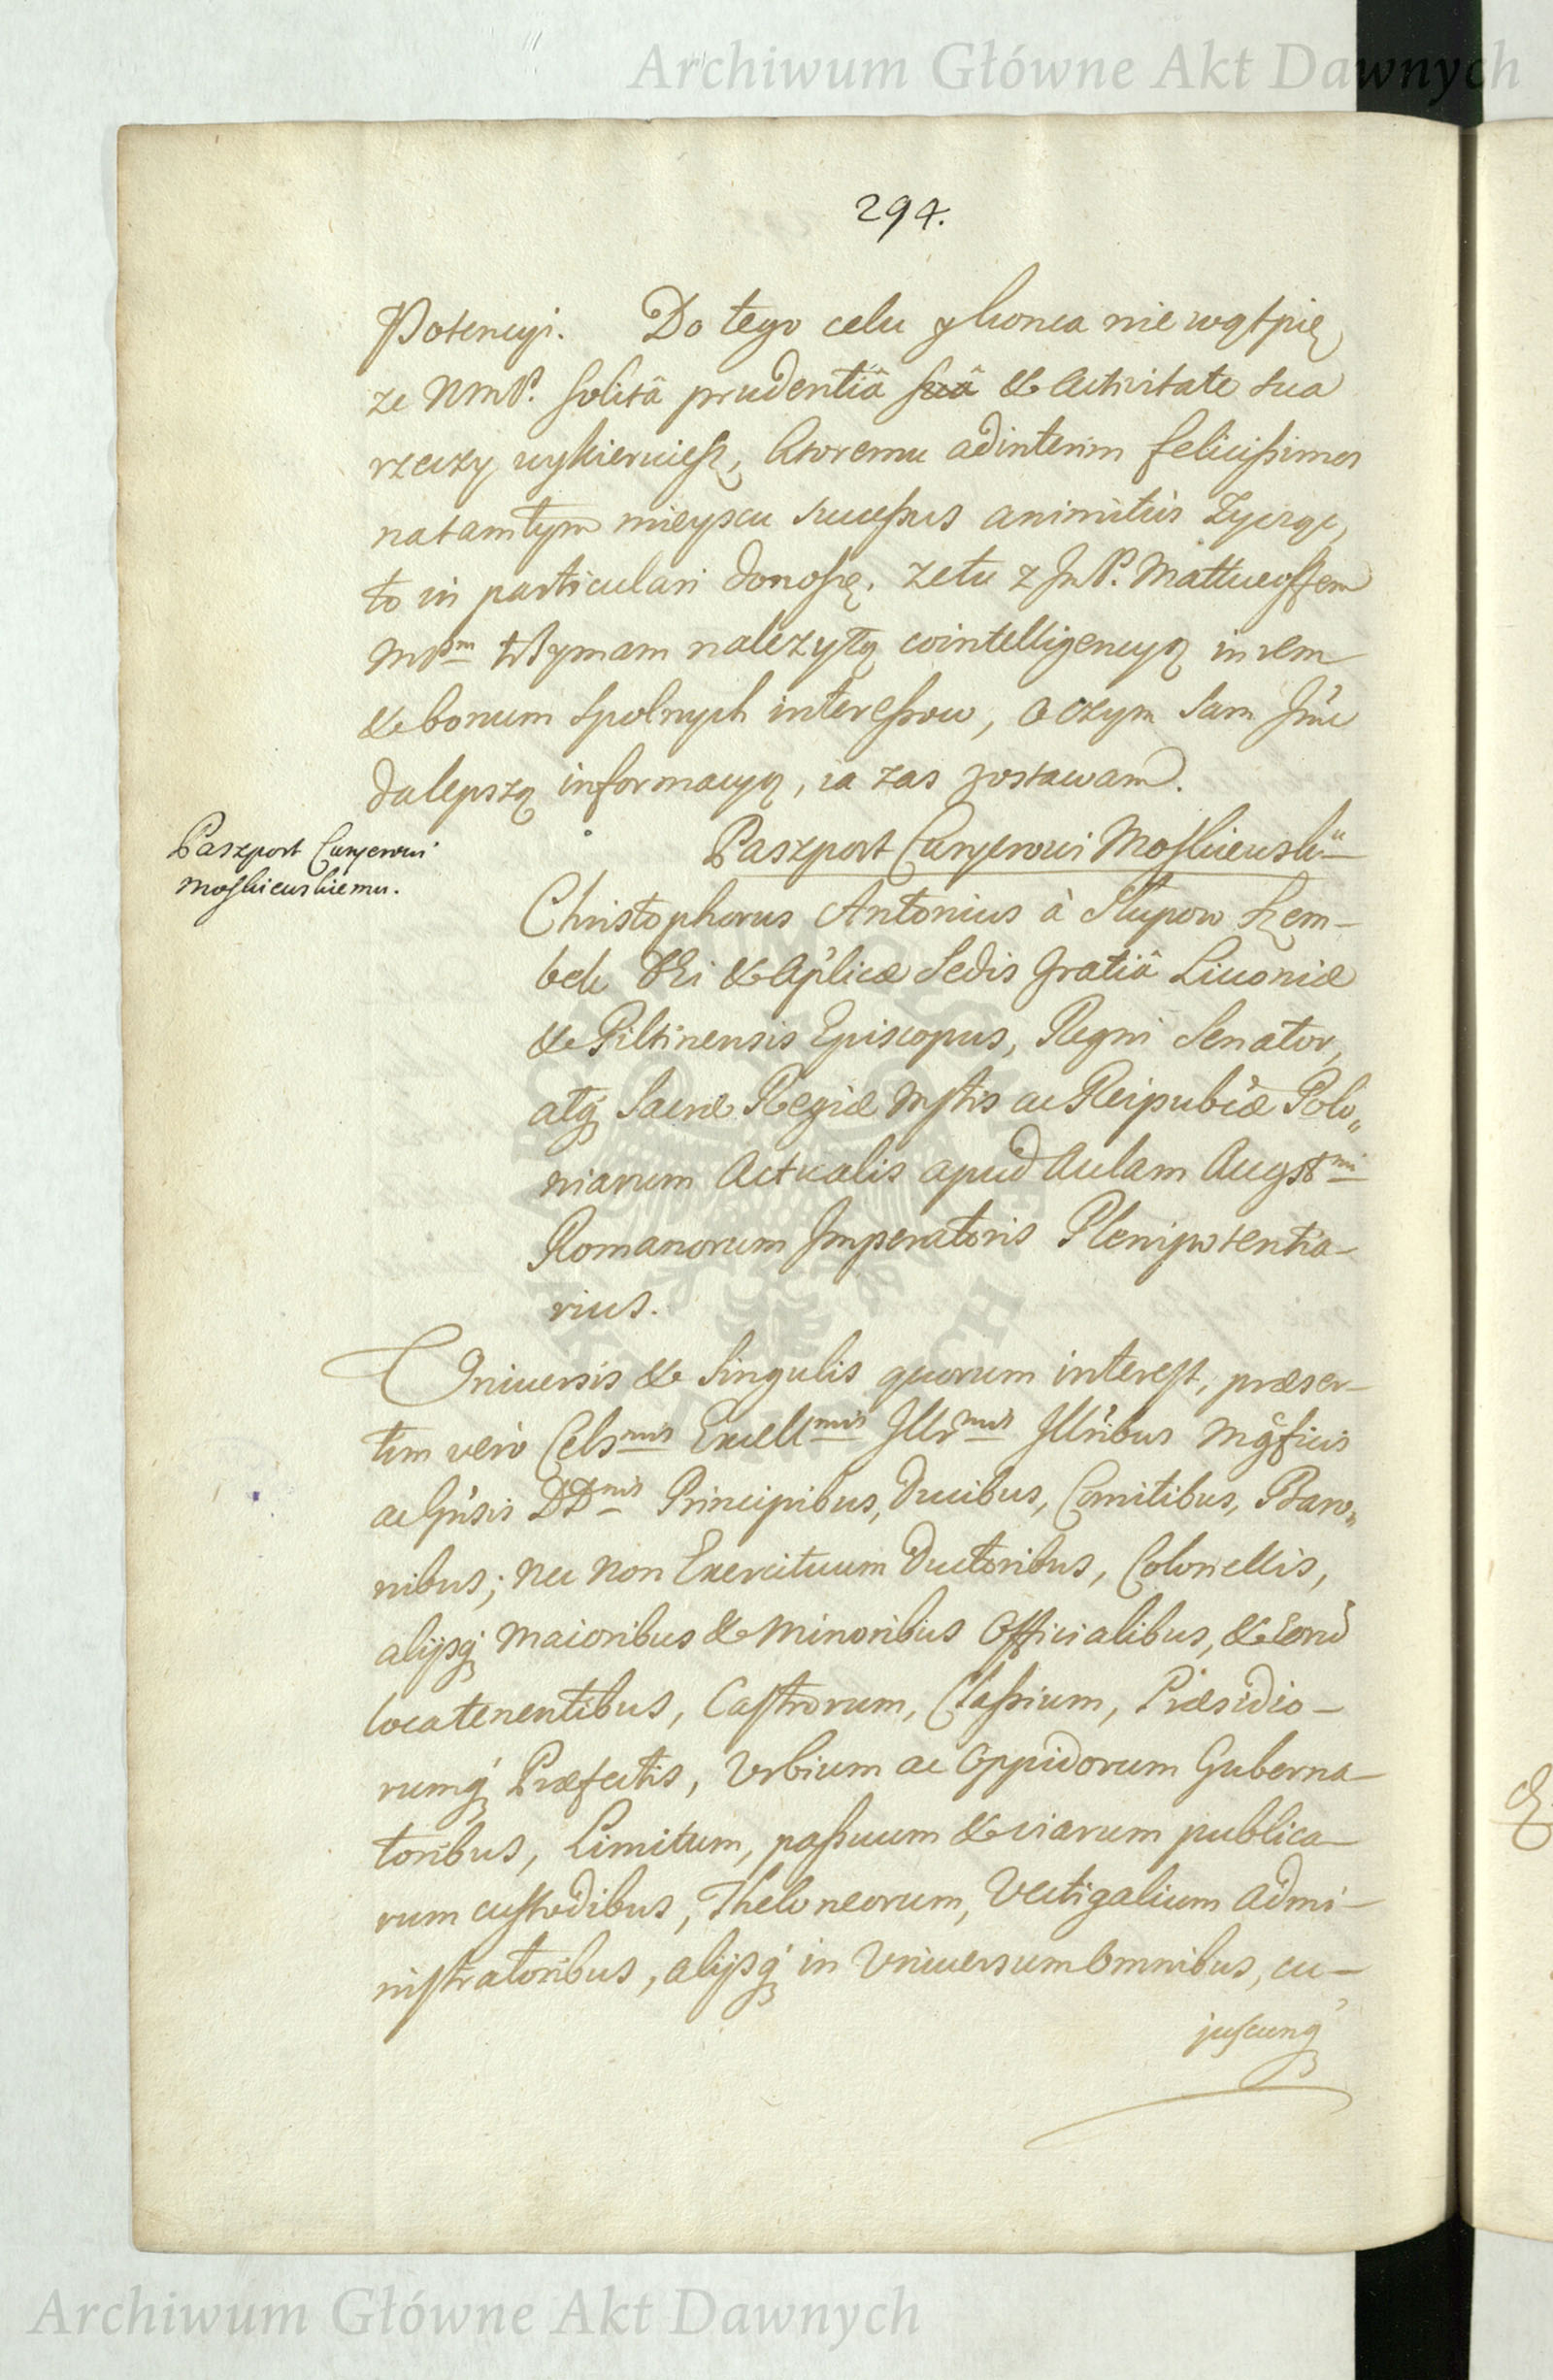 Archiwum Główne Akt Dawnych
294.
Potencyi. Do tego celu y konca nie wątpię
ze WmP. solitâ prudentiâ suâ & activitate sua
rzeczy wykieruiesz, ktoremu adinterim felicissimos
natamtym mieyscu successus animitùs życząc,
to in particulari donoszę. ze tu z JmP. Mattueoffem
mPm trzymam nalezytą cointelligencyą in rem
& bonum spolnych interessow, o czym sam Jmc
da lepszą informacyą, ia zas zostawam.
Paszport Curyerowi
Moskiewskiemu.
Paszport Curyerowi Moskiewskiu
Christophorus Antonius à Słupow Szem-
bek DEi & Aplicæ Sedis gratiâ Livoniæ
& Piltinensis Episcopus, Regni Senator,
atq Sacræ Regiæ Mstis ac Reipubcæ Polo„
niarum Actualis apud Aulam Augstmi
Romanorum Imperatoris Plenipotentia-
rius.
Universis & Singulis quorum interest, præser-
tim verò Celsmis Excellmis Illrmis Illribus Mgficis
ac Gnsis DDnis Principibus, Ducibus, Comitibus, Baro„
nibus; nec non Exercituum Ductoribus, Colonellis,
alijsq maioribus & minoribus Officialibus, & eorũ
locatenentibus, Castrorum, Classium, Præsidio-
rumq Præfectis, Urbium ac Oppidorum Guberna-
toribus, Limitum, passuum & viarum publica-
rum custodibus, Theloneorum, Vectigalium Admi-
nistratoribus, alijsq in Universum Omnibus, cu-
juscunq
Archiwum Główne Akt Dawnych